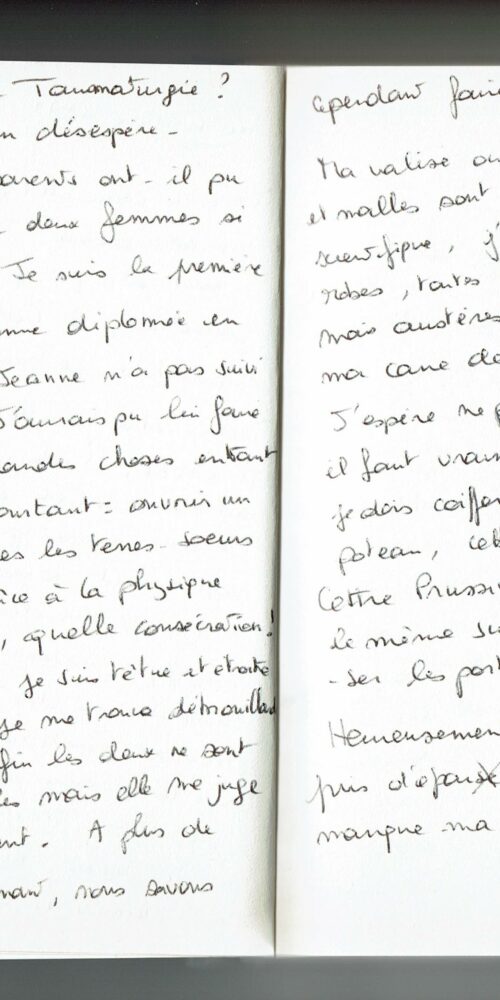 Taumaturgie ?
n désespère -
parents ont - il pu
deux femmes si
Je suis la première
nme diplomée en
Jeanne n'a pas suivi
J'aurais pu lui faire
andes choses entant
ourtant = ouvrir un
es les terres - soeurs
âce à la physique
, aquelle consécration !
je suis têtue et étroite
je me trouve débrouillard
fin les deux ne sont
les mais elle me juge
ent. A plus de
, nous savons
cependant fair
Ma valise ou
et malles sont
scientifique, j'
robes, toutes
mais austères
ma cane de
J'espère ne p
il faut vraim
je dois coiffer
poteau, cett
Cettre Prussi
le même su
-ser les port
Heureusemen
puis d'épous
manque ma